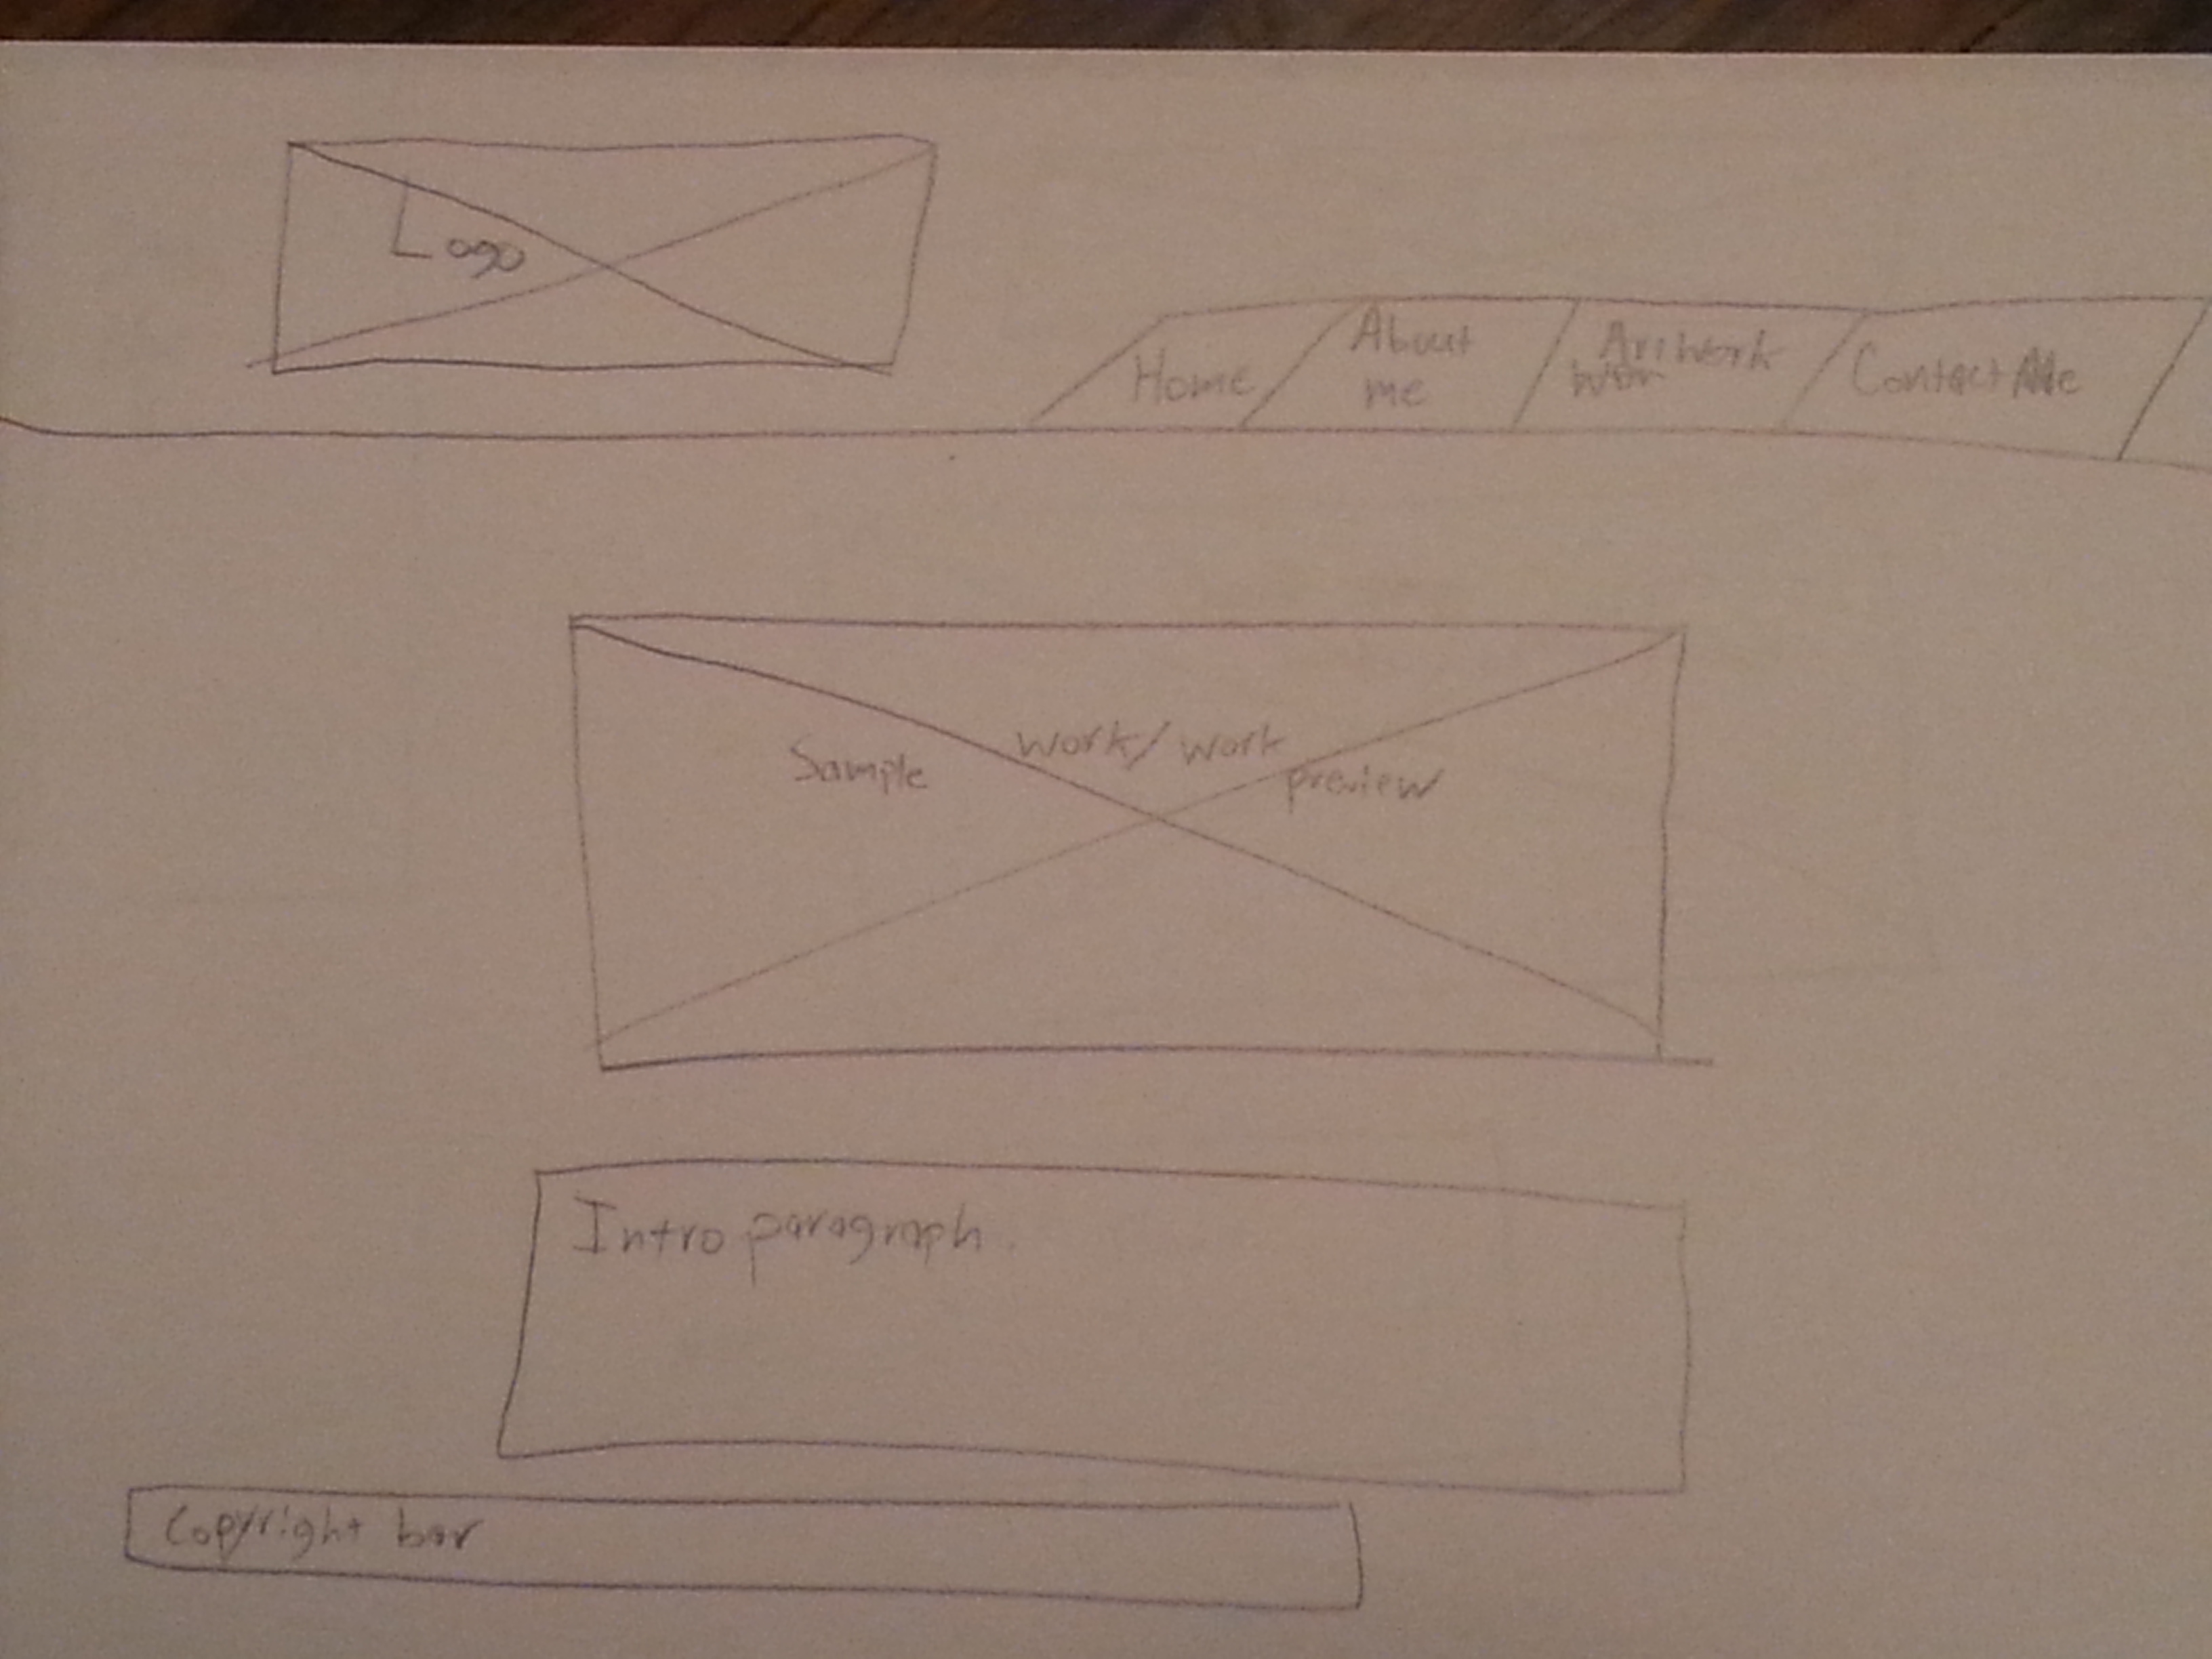 Logo
Home
About
me
Artwork
Contact Me
Sample work/work preview
Intro paragraph.
Copyright bar